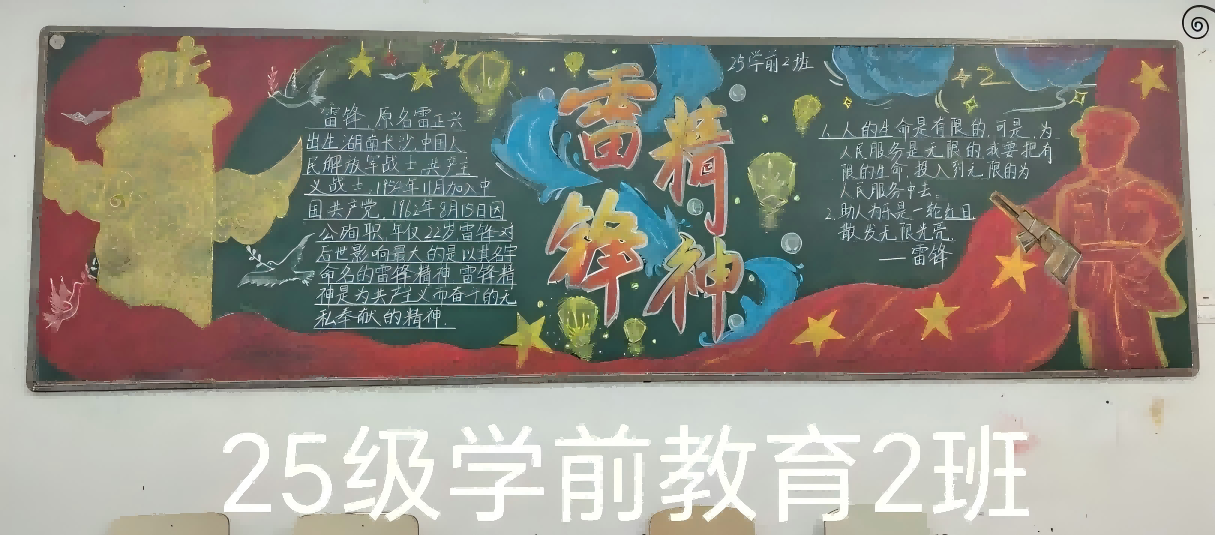 雷锋,原名雷正兴
出生湖南长沙,中国人
民解放军战士,共产主
义战士,1954年11月加入中
国共产党,1962年8月15日因
公殉职,年仅22岁雷锋对
后世影响最大的是以其名字
命名的雷锋精神,雷锋精
神是为共产主义而奋斗的无
私奉献的精神.
雷锋
精神
25学前2班
1.人的生命是有限的,可是,为
人民服务是无限的,我要把有
限的生命,投入到无限的为
人民服务中去。
2.助人为乐是一轮红日,
散发无限光亮,
——雷锋
25级学前教育2班